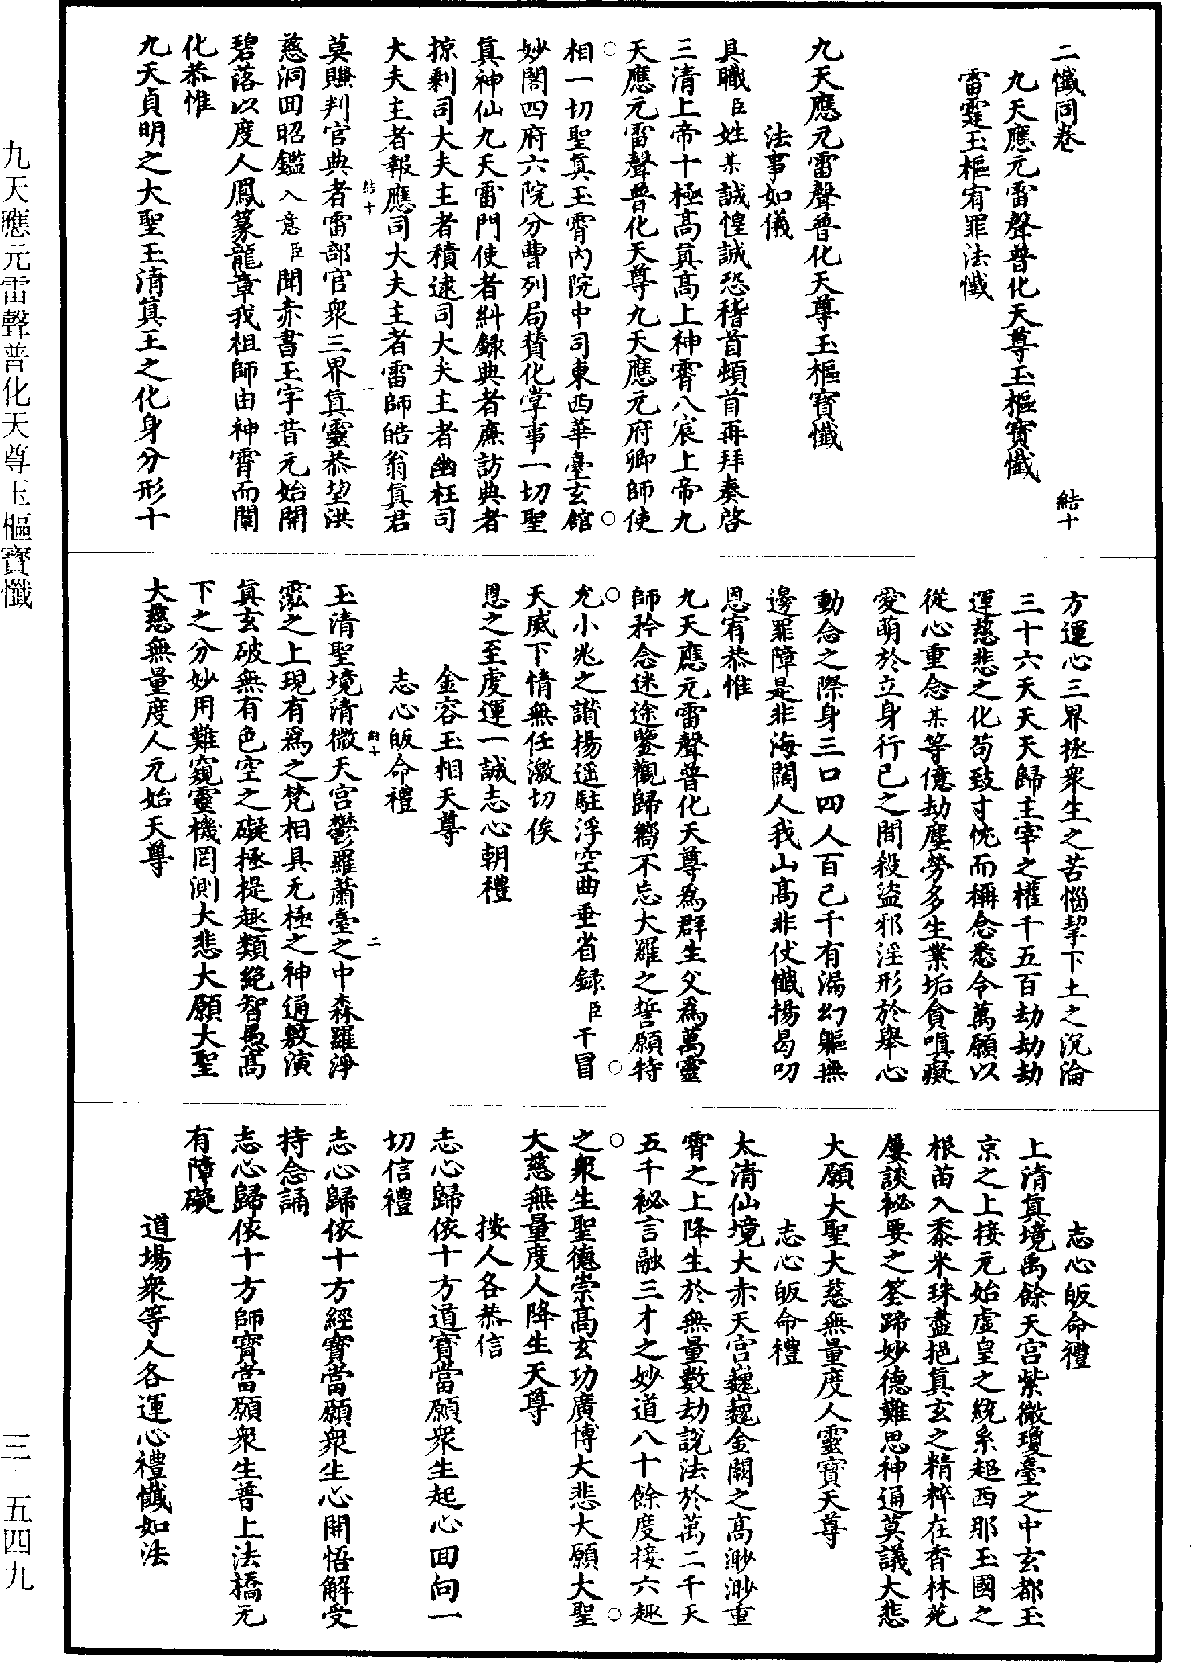 二懺同卷　結十
九天應元雷聲普化天尊玉樞寶懺
雷霆玉樞宥罪法懺
九天應元雷聲普化天尊玉樞寶懺
法事如儀
具職臣姓某誠惶誠恐稽首頓首再拜奏啓
三清上帝十極高真高上神霄八宸上帝九
天應元雷聲普化天尊九天應元府卿師使
相一切聖真玉霄內院中司東西華臺玄館
妙閣四府六院分曹列局贊化掌事一切聖
真神仙九天雷門使者糾錄典者廉訪典者
掠剩司大夫主者積逮司大夫主者幽枉司
大夫主者報應司大夫主者雷師皓翁真君
結十　一
莫賺判官典者雷部官衆三界真靈恭望洪
慈洞回昭鑑入意臣聞赤書玉字昔元始開
碧落以度人鳳篆龍章我祖師由神霄而闡
化恭惟
九天貞明之大聖玉清真王之化身分形十
方運心三界拯衆生之苦惱挈下土之沉淪
三十六天天天歸主宰之權千五百劫劫劫
運慈悲之化苟致寸忱而稱念悉令萬願以
從心重念某等億劫塵勞多生業垢貪嗔癡
愛萌於立身行已之間殺盜邪淫形於舉心
動念之際身三口四人百己千有漏幻軀無
邊罪障是非海闊人我山高非仗懺揚曷叨
恩宥恭惟
九天應元雷聲普化天尊為群生父為萬靈
師矜念迷途鑒觀歸嚮不忘大羅之誓願特
允小兆之讚揚遥駐浮空曲垂省録臣干冒
天威下情無任激切俟
恩之至虔運一誠志心朝禮
金容玉相天尊
志心皈命禮
結十　二
玉清聖境清微天宮鬱羅蕭臺之中森羅淨
泓之上現有為之梵相具无極之神通敷演
真玄破無有色空之礙極提趣類絶智愚高
下之分妙用難窺靈機罔測大悲大願大聖
大慈無量度人元始天尊
志心皈命禮
上清真境禹餘天宮紫微瓊臺之中玄都玉
京之上接元始虛皇之統系超西那玉國之
根苗入黍米珠盡挹真玄之精粹在香林苑
屢談秘要之筌蹄妙德難思神通莫議大悲
大願大聖大慈無量度人靈寶天尊
志心皈命禮
太清仙境大赤天宮巍巍金闕之高渺渺重
霄之上降生於無量數劫說法於萬二千天
五千祕言融三才之妙道八十餘度接六趣
之衆生聖德崇高玄功廣博大悲大願大聖
大慈無量度人降生天尊
按人各恭信
志心歸依十方道寶當願衆生起心回向一
切信禮
志心歸依十方經寶當願衆生心開悟解受
持念誦
志心歸依十方師寶當願衆生普上法橋无
有障礙
道場衆等人各運心禮懺如法
九天應元雷聲普化天尊玉樞寶懺
三　五四九